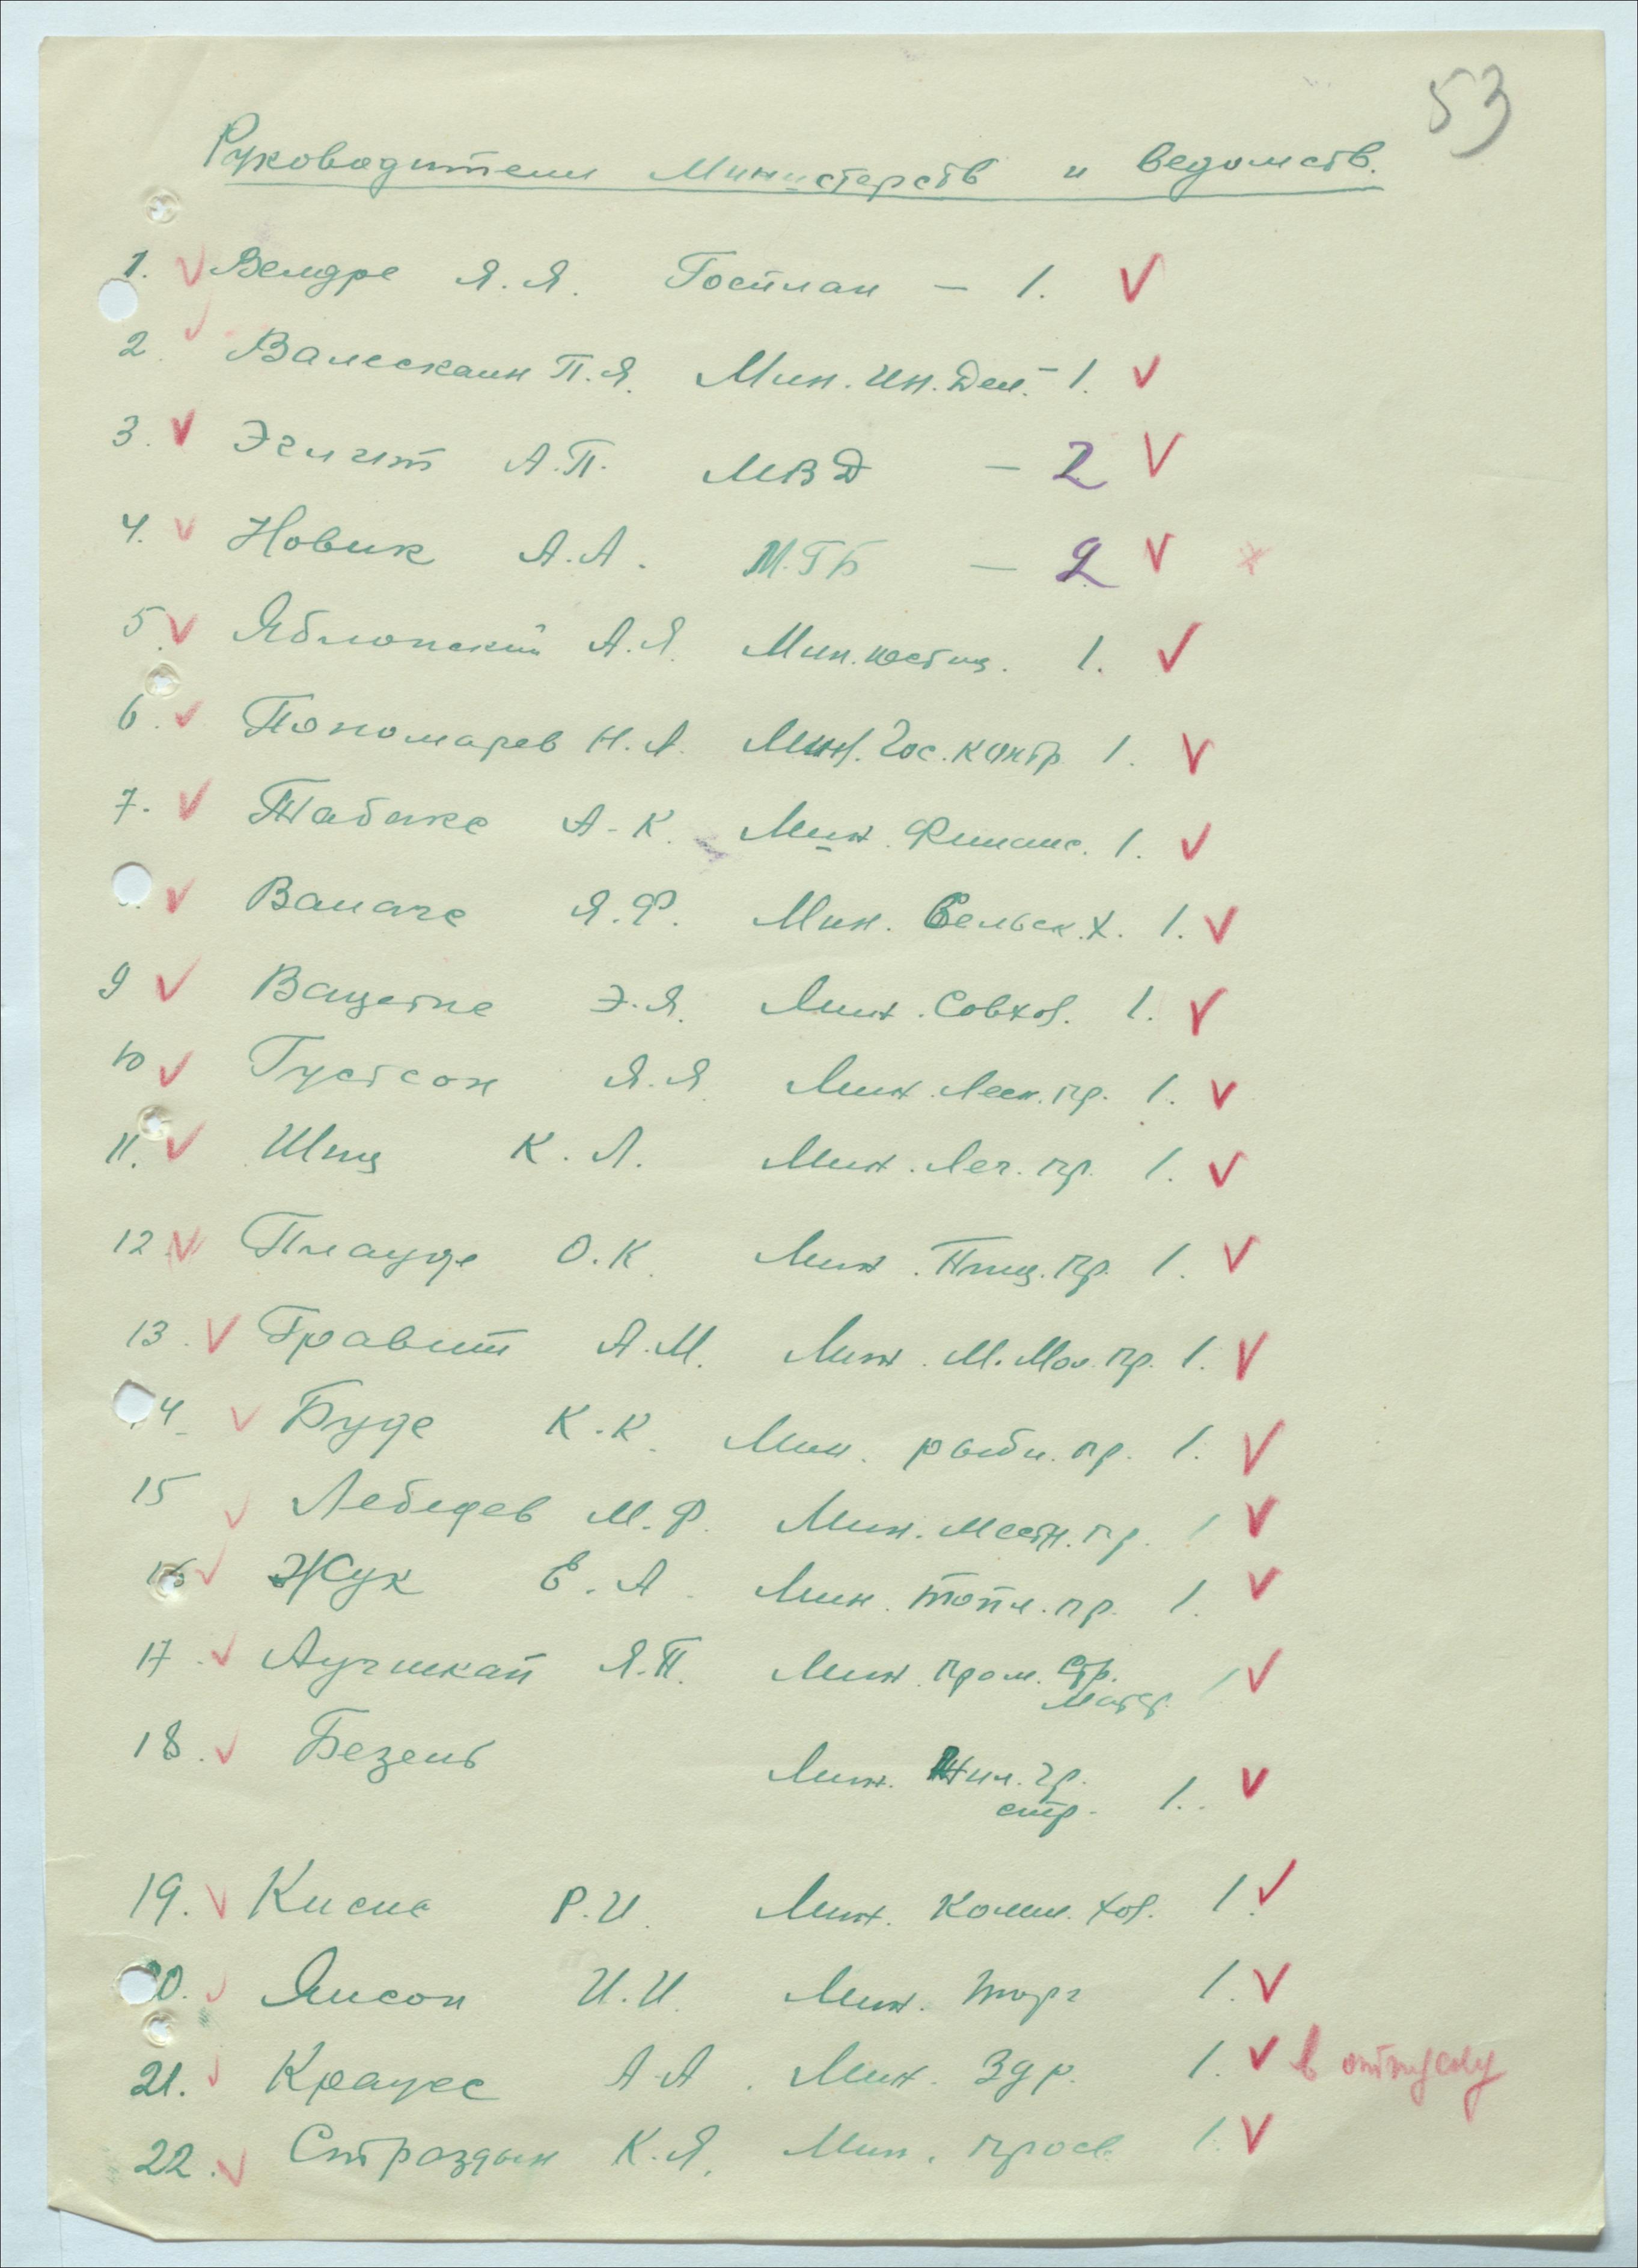 53
Руководители Министерств и ведомств.
1. Велдре Я.Я. Госплан – 1.
2. Валескалн П.Я. Мин. Ин. Дел. – 1.
3. Эглит А.П. МВД – 2
4. Новик А.А. М.ГБ – 2
5. Яблонский А.Я. Мин. юстиц. 1.
6. Пономарев Н.А. Мин. Гос. контр. 1.
7. Табаке А.К. Мин. Финанс. 1.
Ванаге Я.Ф. Мин. Сельск. х. 1.
9 Вацетне Э.Я. Мин. Совхоз. 1.
10 Густсон Я.Я. Мин. Лесн. пр. 1.
11. Шпиц К.Л. Мин. Лег. пр. 1.
12 Плауде О.К. Мин. Пищ. пр. 1.
13. Гравит А.М. Мин. М. Мол. пр. 1.
14 Буде К.К. Мин. рыбн. пр. 1.
15 Лебедев М.Ф. Мин. Местн. пр. 1
16 Жук Е.А. Мин. топл. пр. 1.
17. Аучшкап Я.П. Мин. пром. стр. 1
матер.
18. Безень Мин. Жил. гр. 1.
стр.
19. Кисис Р.И. Мин. Комм. хоз. 1.
20. Янсон И.И. Мин. торг 1.
21. Краусс А.А. Мин. Здр. 1. в отпуску
22. Страздын К.Я. Мин. просв. 1.